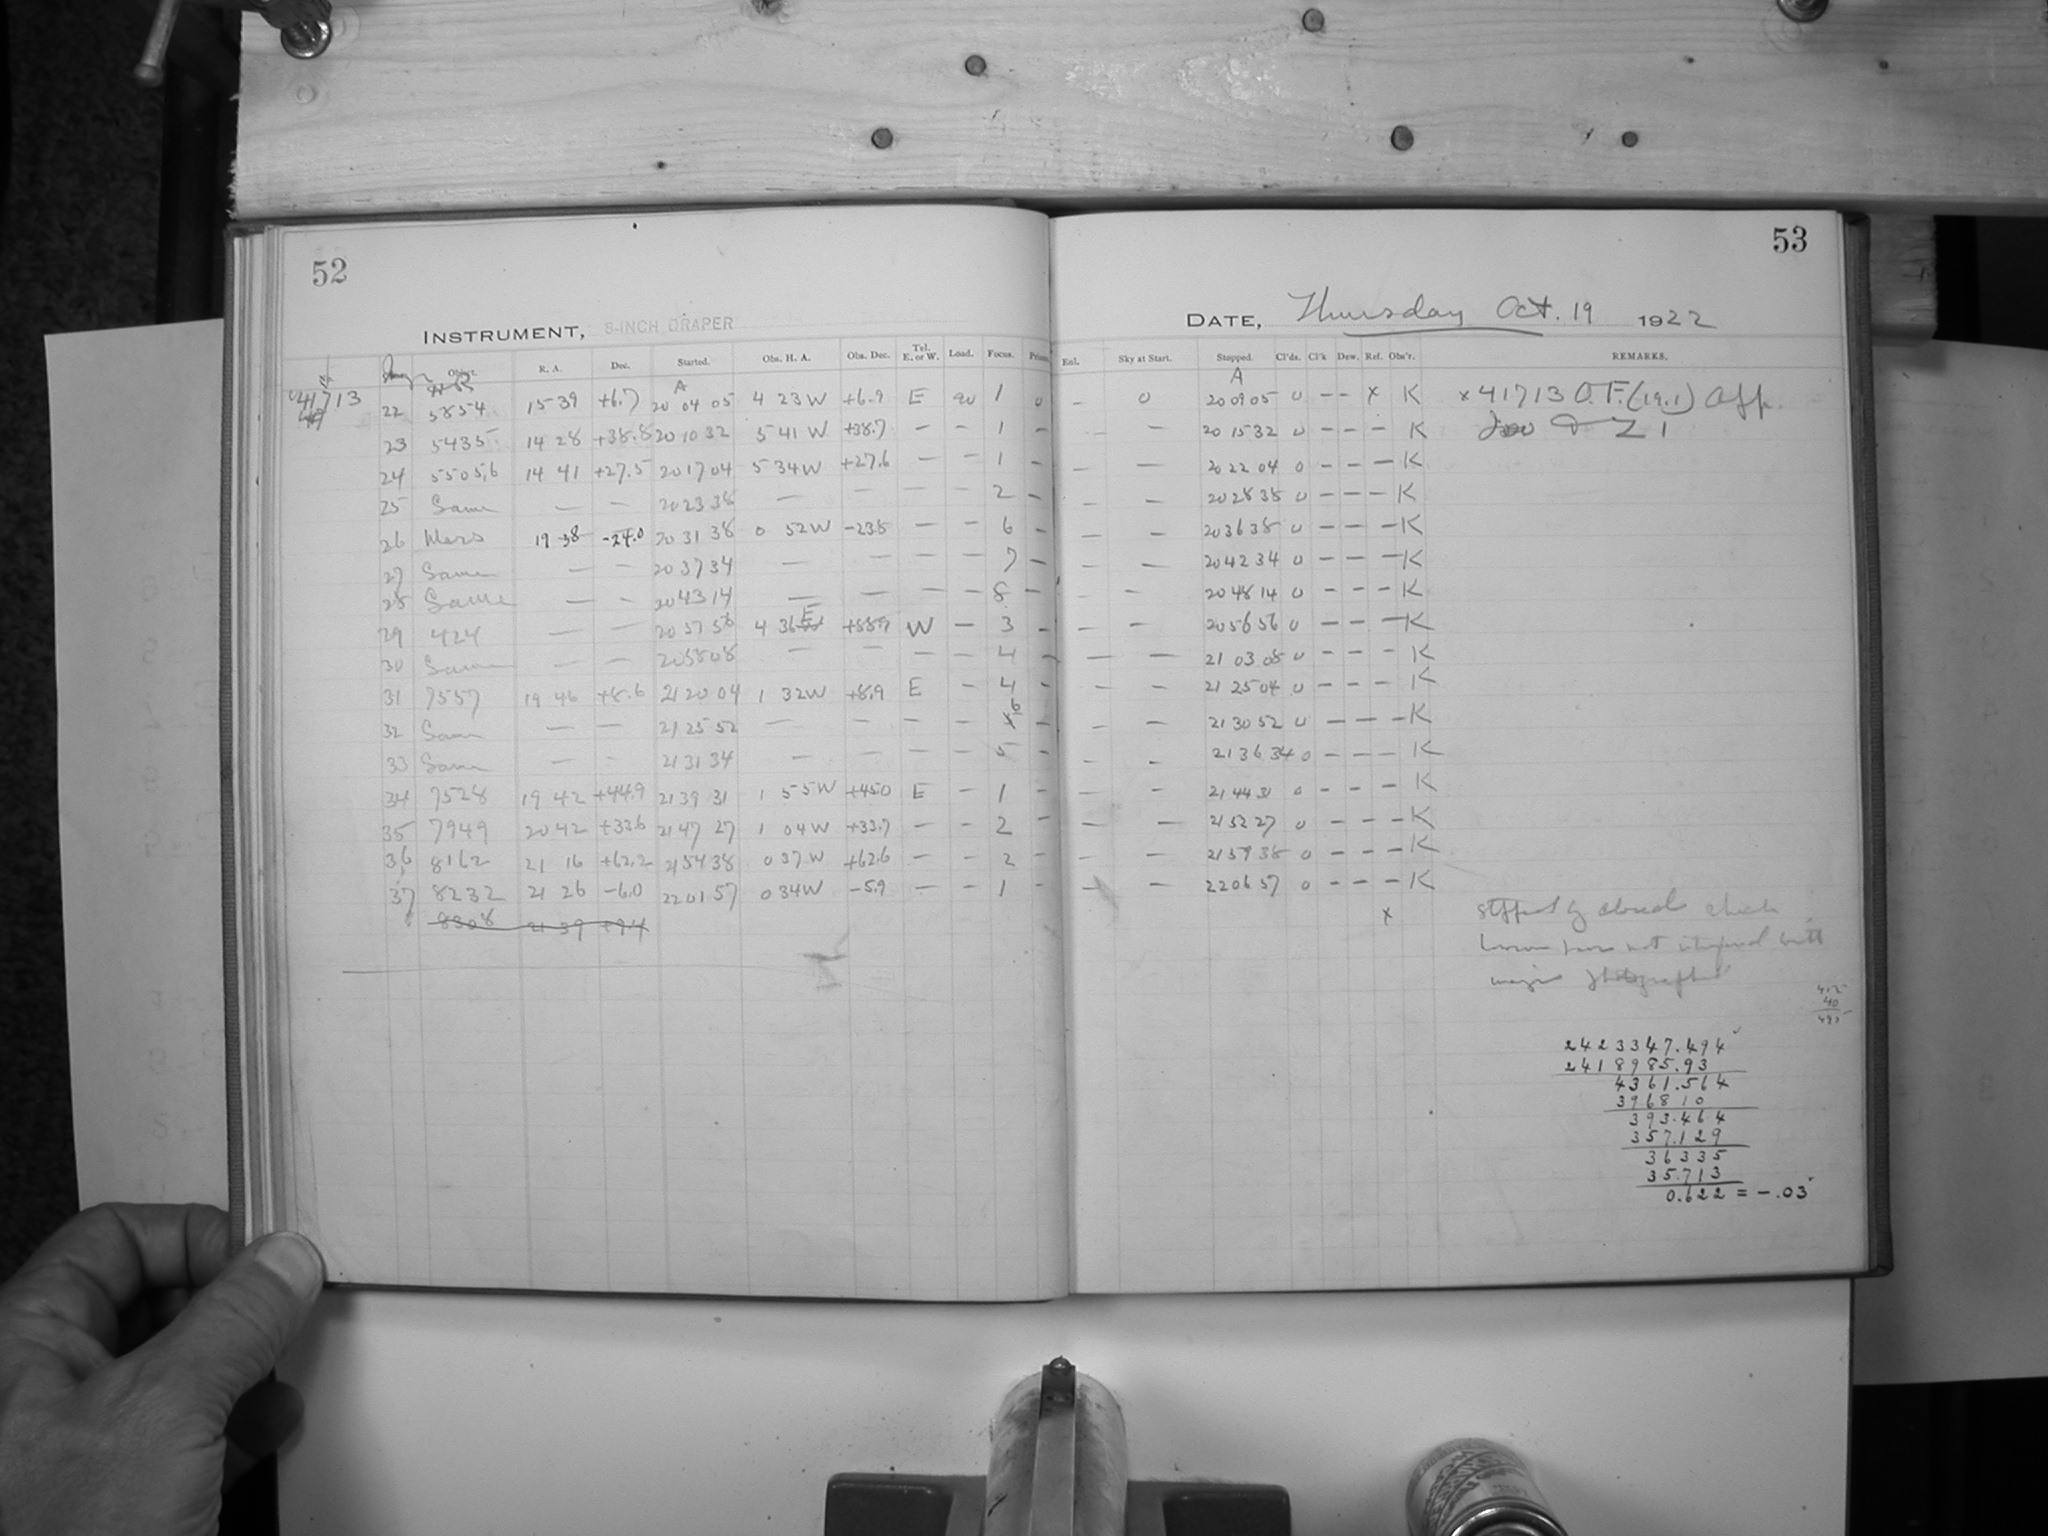 52
53
INSTRUMENT, 8-INCH DRAPER
DATE, Thursday Oct. 19 1922
Object. R. A. Dec. Started. Obs. H. A. Obs. Dec. Tel. E. or W. Load. Focus. Enl. Sky at Start. Stopped. Cl'ds. Cl'k Dew. Ref. Obs'r. REMARKS.
A A
41713 22 5854 15 39 +6.7 20 04 05 4 23 W +6.9 E 90 1 0 - 0 20 09 05 0 - - x K x 41713 O.F. (19.1) Aff.
23 5435 14 28 +38.8 20 10 32 5 41 W +38.7 - - 1 - - 20 15 32 0 - - - K
24 5505,6 14 41 +27.5 20 17 04 5 34 W +27.6 - - 1 - - — 20 22 04 0 - - - K
25 Same — — 20 23 38 — — — — 2 - - 20 28 38 0 - - - K
26 Mars 19 38 -24.0 20 31 38 0 52 W -23.8 - - 6 - - - 20 36 38 0 - - - K
27 Same — — 20 37 34 — — — 7 - - — 20 42 34 0 - - - K
28 Same — - 20 43 14 — — — — 8 - - - 20 48 14 0 - - - K
29 424 — — 20 57 56 4 36 E +88.9 W - 3 - - - 20 56 56 0 - - - K
30 Same — — 20 58 08 — — — — 4 - - — 21 03 08 0 - - - K
31 7557 19 46 +8.6 21 20 04 1 32 W +8.9 E - 4 - - - 21 25 04 0 - - - K
32 Same — — 21 25 52 — — - - 6 - - - 21 30 52 0 - - - K
33 Same — - 21 31 34 — — — - 5 - - - 21 36 34 0 - - - K
34 7528 19 42 +44.9 21 39 31 1 55 W +45.0 E - 1 - - - 21 44 31 0 - - - K
35 7949 20 42 +33.6 21 47 27 1 04 W +33.7 - - 2 - - — 21 52 27 0 - - - K
36 8162 21 16 +62.2 21 54 38 0 37 W +62.6 - - 2 - - - 21 59 38 0 - - - K
37 8232 21 26 -6.0 22 01 57 0 34 W -5.9 - - 1 - - - 22 06 57 0 - - - K
8308 21 39 +9.4 x
not
2423347.494
2418985.93
4361.564
396810
393.464
357.129
36335
35.713
0.622 = -.03